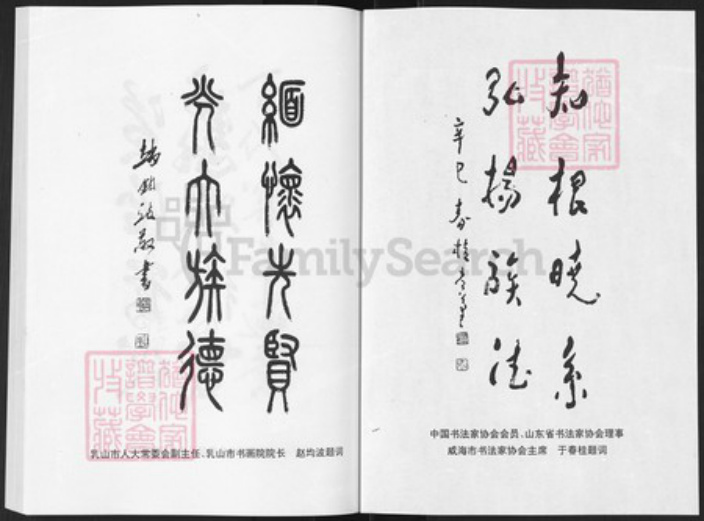 緬懷先賢
光大族德
知根曉系
弘揚族德
辛巳 春桂
乳山市人大常委会副主任、乳山市书画院院长　赵均波题词
中国书法家协会会员、山东省书法家协会理事
威海市书法家协会主席　于春桂题词
FamilySearch